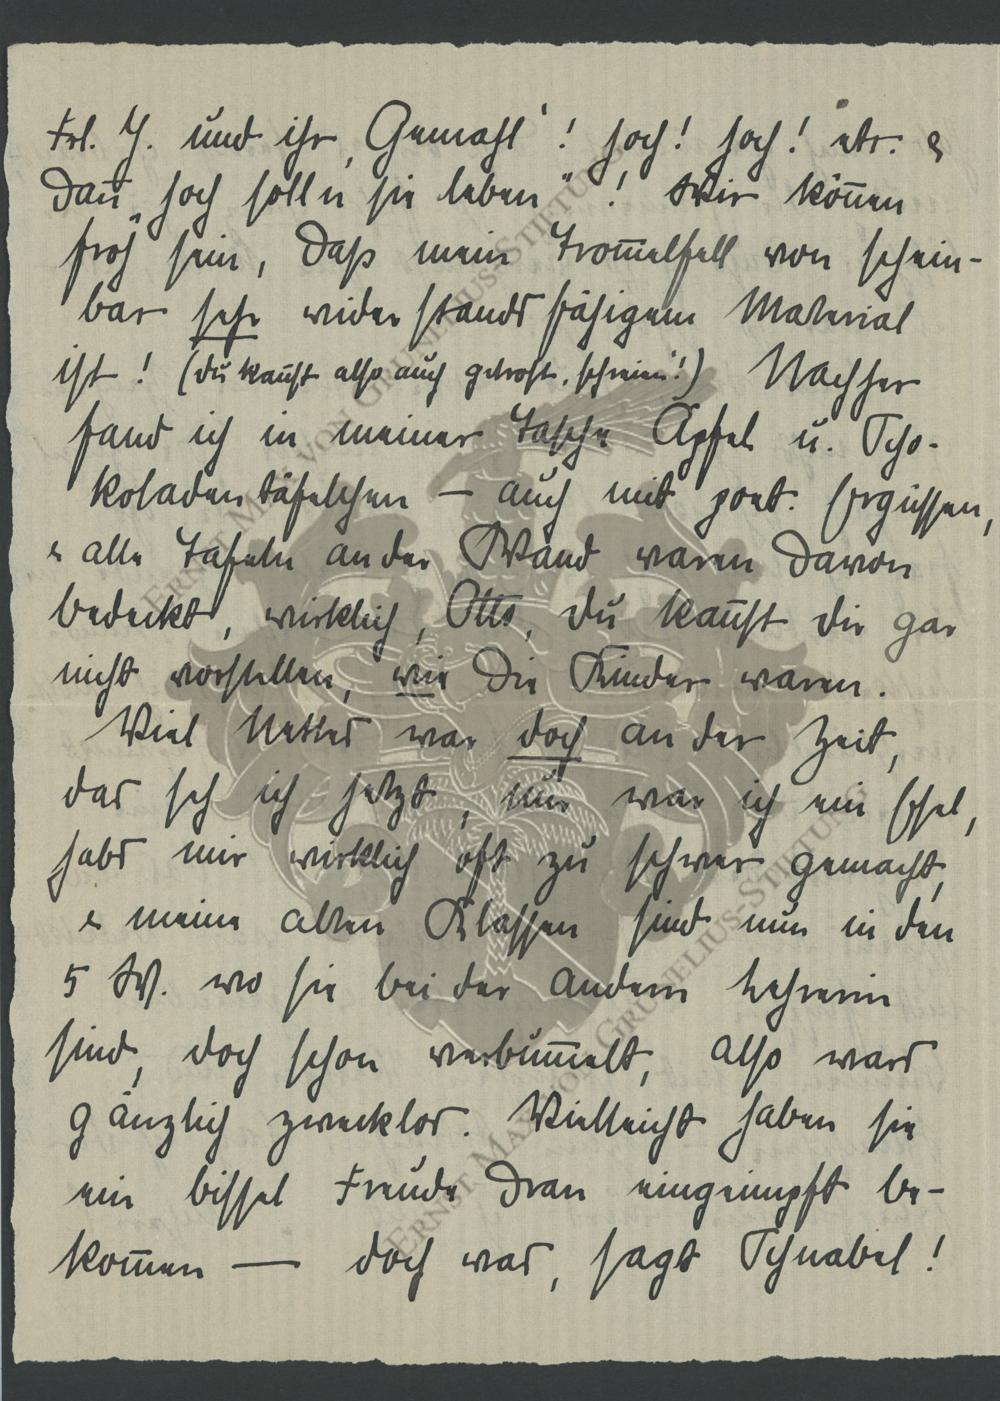 Frl. Y. und ihr „Gemahl“! hoch! hoch! etc. &
dan̄ „hoch soll'n sie leben“! Wir kön̄en
froh sein, daß mein Trom̄elfell von schein-
bar sehr widerstandsfähigem Material
ist! (du kan̄st also auch getrost „schreien“!) Nachher
fand ich in meiner Tasche Äpfel u. Scho-
koladentäfelchen — auch mit poet. Ergüssen,
& alle Tafeln an der Wand waren davon
bedeckt, wirklich, Otto, du kan̄st dir gar
nicht vorstellen, wie die Kinder waren.
Viel Nettes war doch an der Zeit,
das seh ich jetzt, nur war ich ein Esel,
habs mir wirklich oft zu schwer gemacht,
& meine alten Klassen sind nun in den
5 W. wo sie bei der andern Lehrerin
sind, doch schon verbum̄elt, also wars
gänzlich zwecklos. Vielleicht haben sie
ein bissel Freude dran eingeimpft be-
kom̄en — doch was, sagt Schnabel!
ERNST MAX VON GRUNELIUS-STIFTUNG
ERNST MAX VON GRUNELIUS-STIFTUNG